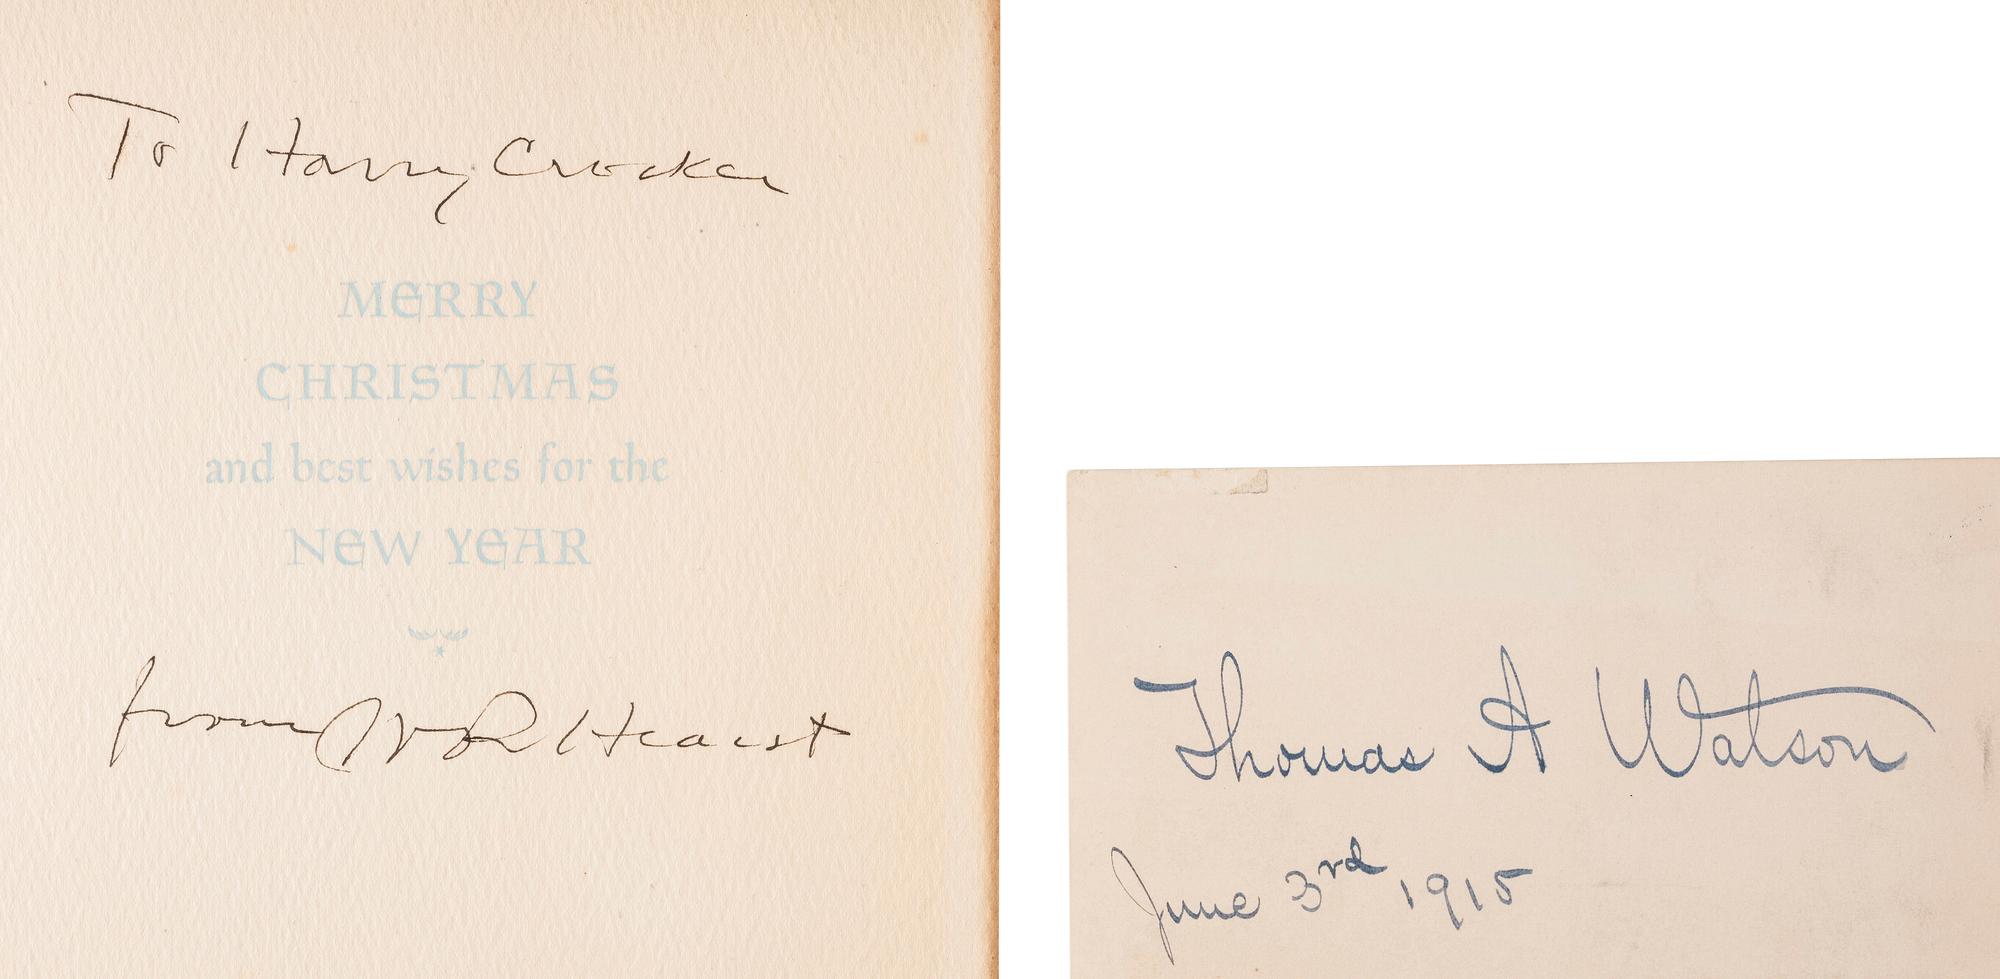 To Harry Crocker
MERRY
CHRISTMAS
and best wishes for the
NEW YEAR
from W R Hearst
Thomas A Watson
June 3rd 1915